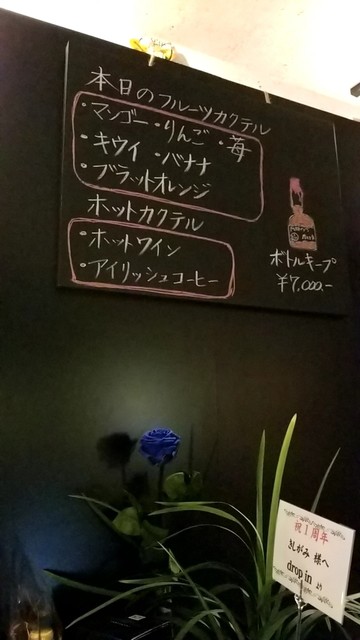 本日のフルーツカクテル
・マンゴー ・りんご ・苺
・キウイ ・バナナ
・ブラッドオレンジ
ホットカクテル
・ホットワイン
・アイリッシュコーヒー
ボトルキープ
¥7,000.-
祝1周年
きしがみ 様へ
drop in より